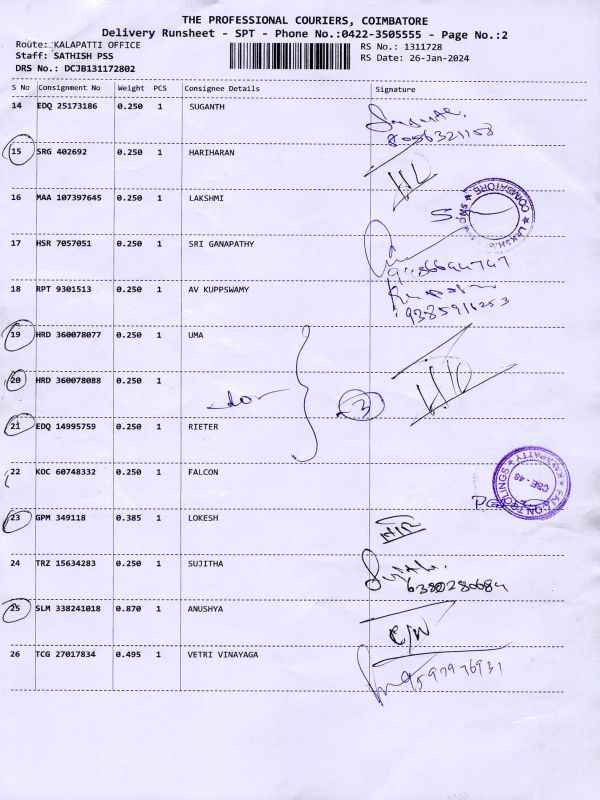 THE PROFESSIONAL COURIERS, COIMBATORE
Delivery Runsheet - SPT - Phone No.:0422-3505555 - Page No.:2
Route: KALAPATTI OFFICE
RS No.: 1311728
Staff: SATHISH PSS
RS Date: 26-Jan-2024
DRS No.: DCJB131172802
S No Consignment No Weight PCS Consignee Details Signature
14 EDQ 25173186 0.250 1 SUGANTH
8056321158
15 SRG 402692 0.250 1 HARIHARAN
16 MAA 107397645 0.250 1 LAKSHMI
COIMBATORE
17 HSR 7057051 0.250 1 SRI GANAPATHY
18 RPT 9301513 0.250 1 AV KUPPSWAMY
9385916253
19 HRD 360078077 0.250 1 UMA
20 HRD 360078088 0.250 1
do 3
21 EDQ 14995759 0.250 1 RIETER
22 KOC 60748332 0.250 1 FALCON
FALCON TOOLINGS
CBE - 48
23 GPM 349118 0.385 1 LOKESH
24 TRZ 15634283 0.250 1 SUJITHA
6380280684
25 SLM 338241018 0.870 1 ANUSHYA
C/N
26 TCG 27017834 0.495 1 VETRI VINAYAGA
9597976931